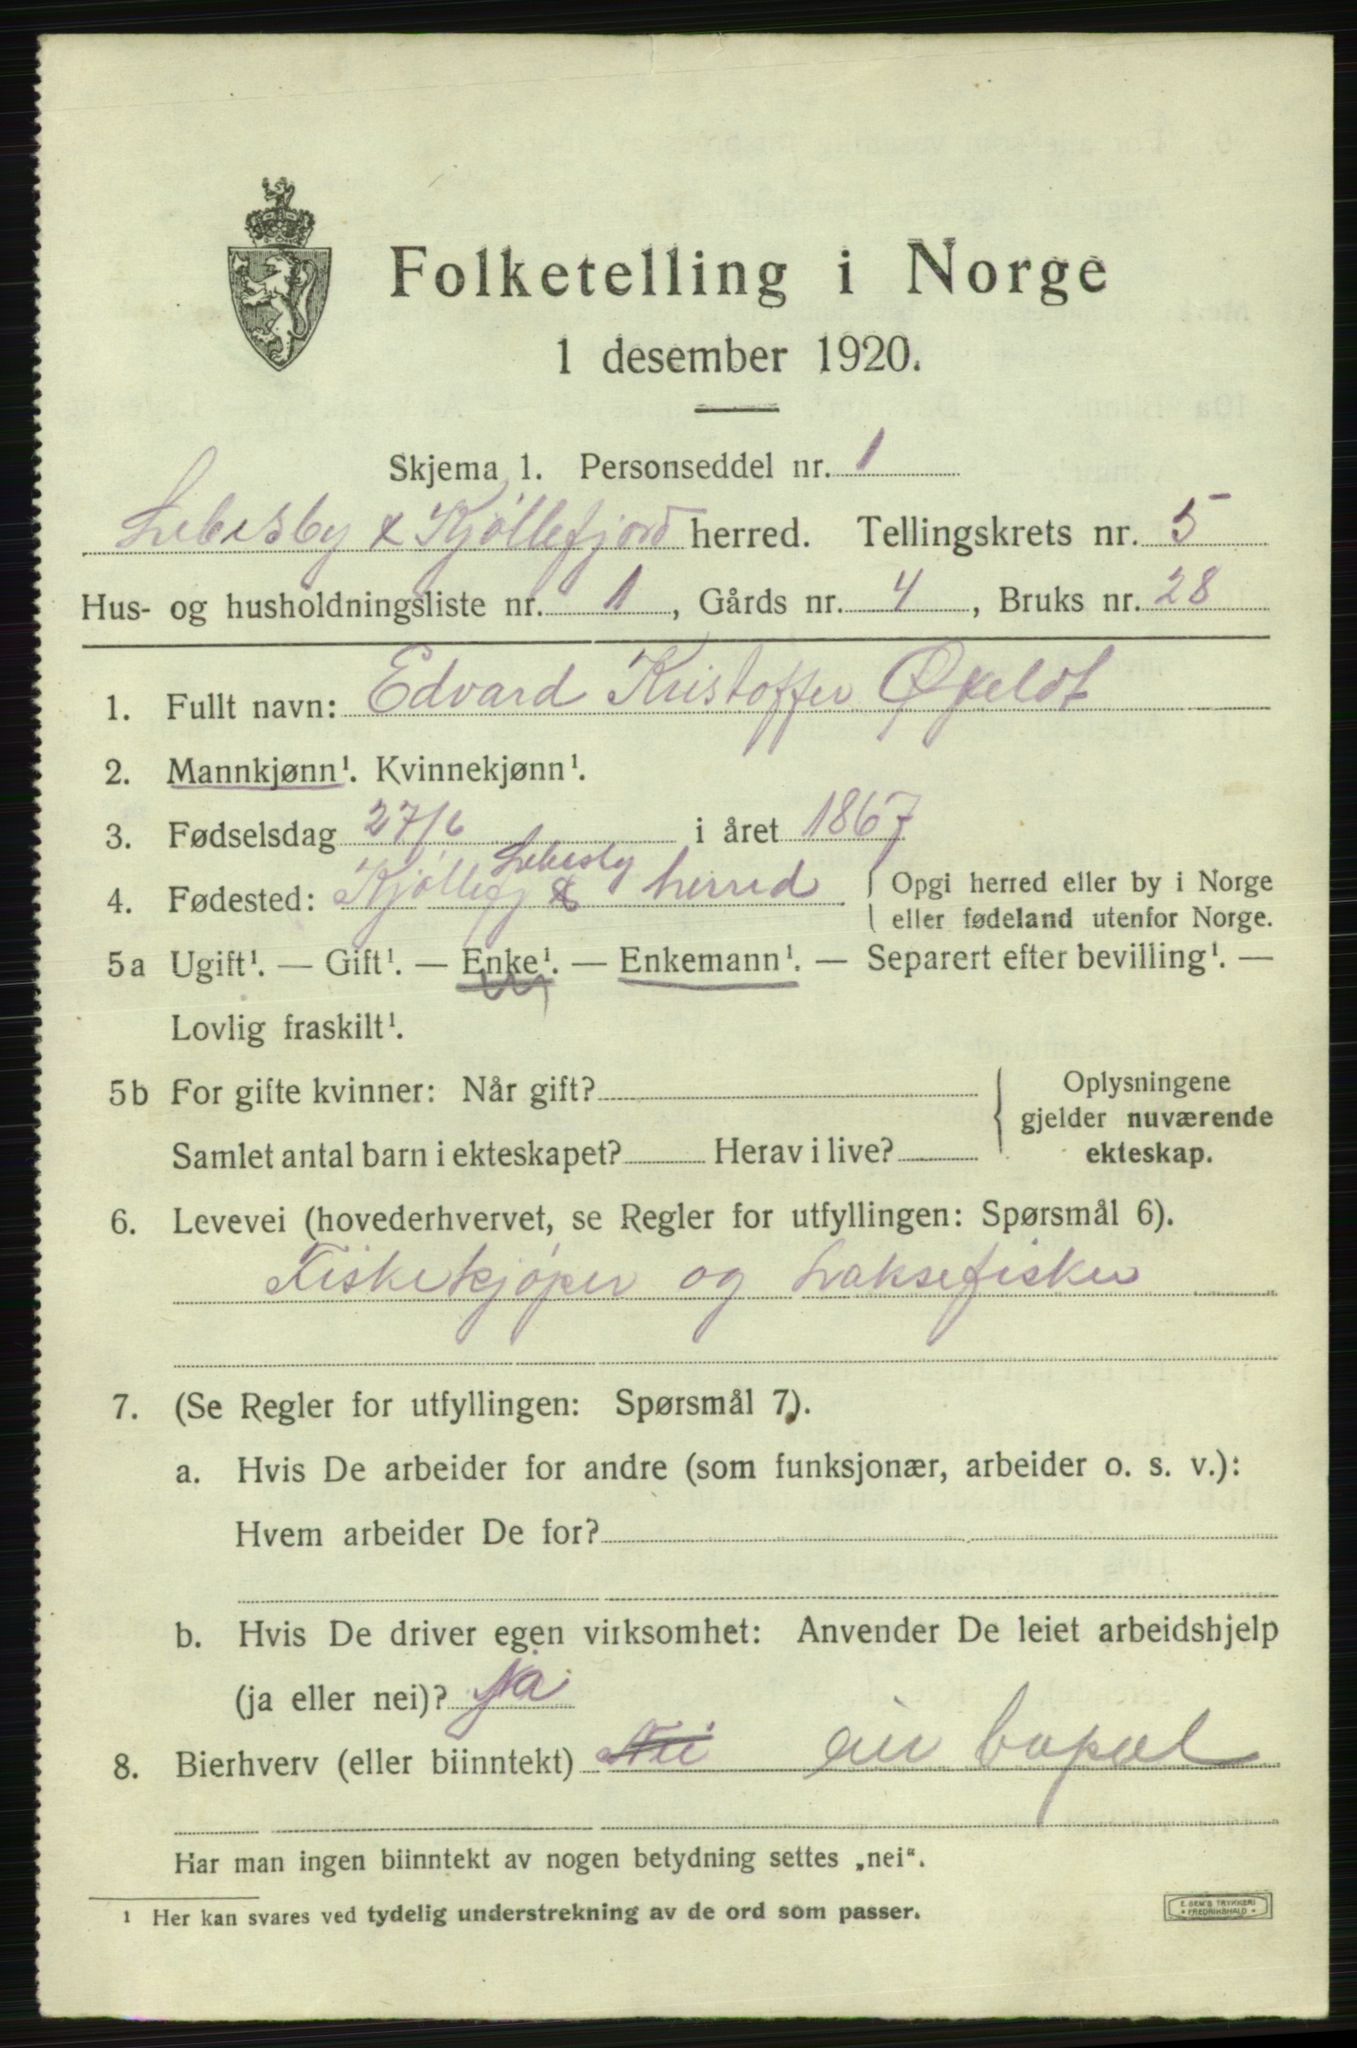 Folketelling i Norge
1 desember 1920.
Skjema 1. Personseddel nr. 1
Lebesby & Kjøllefjord herred. Tellingskrets nr. 5
Hus- og husholdningsliste nr. 1, Gårds nr. 4, Bruks nr. 28
1. Fullt navn: Edvard Kristoffer Økeldt
2. Mannkjønn¹. Kvinnekjønn¹.
3. Fødselsdag 27/6 i året 1867
Lebesby
4. Fødested: Kjøllefj & herred { Opgi herred eller by i Norge
eller fødeland utenfor Norge.
5a Ugift¹. — Gift¹. — Enke¹. — Enkemann¹. — Separert efter bevilling¹. —
Lovlig fraskilt¹.
5b For gifte kvinner: Når gift? { Oplysningene
gjelder nuværende
Samlet antal barn i ekteskapet? Herav i live? ekteskap.
6. Levevei (hovederhvervet, se Regler for utfyllingen: Spørsmål 6).
Fiskekjøper og Laksefisker
7. (Se Regler for utfyllingen: Spørsmål 7).
a. Hvis De arbeider for andre (som funksjonær, arbeider o. s. v.):
Hvem arbeider De for?
b. Hvis De driver egen virksomhet: Anvender De leiet arbeidshjelp
(ja eller nei)? Ja
8. Bierhverv (eller biinntekt) Nei
Har man ingen biinntekt av nogen betydning settes „nei".
¹ Her kan svares ved tydelig understrekning av de ord som passer.
E. SEM'S TRYKKERI
FREDRIKSHALD